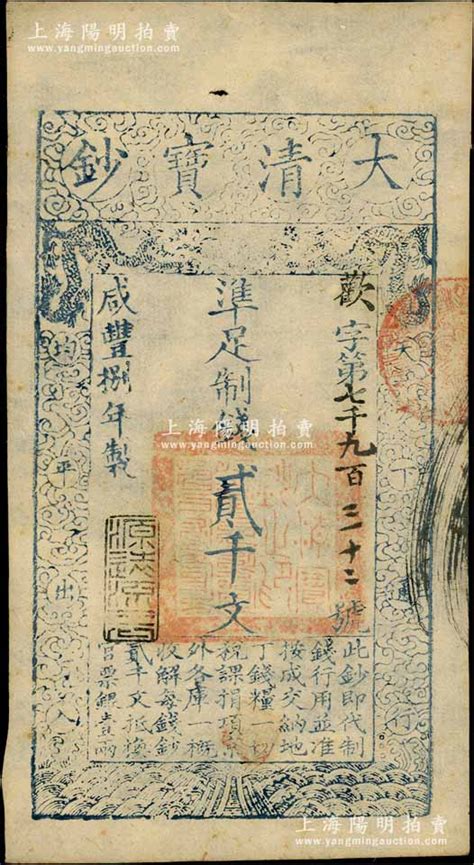 上海陽明拍賣
www.yangmingauction.com
大清寶鈔
天下通行
歡字第七千九百二十二號
準足制錢貳千文
咸豐捌年製
均平出入
此鈔即代制
錢行用並准
按成交納地
丁錢糧一切
稅課捐項京
外各庫一概
收解每錢鈔
貳千文抵換
官票銀壹兩
上海陽明拍賣
www.yangmingauction.com
上海陽明拍賣
www.yangmingauction.com